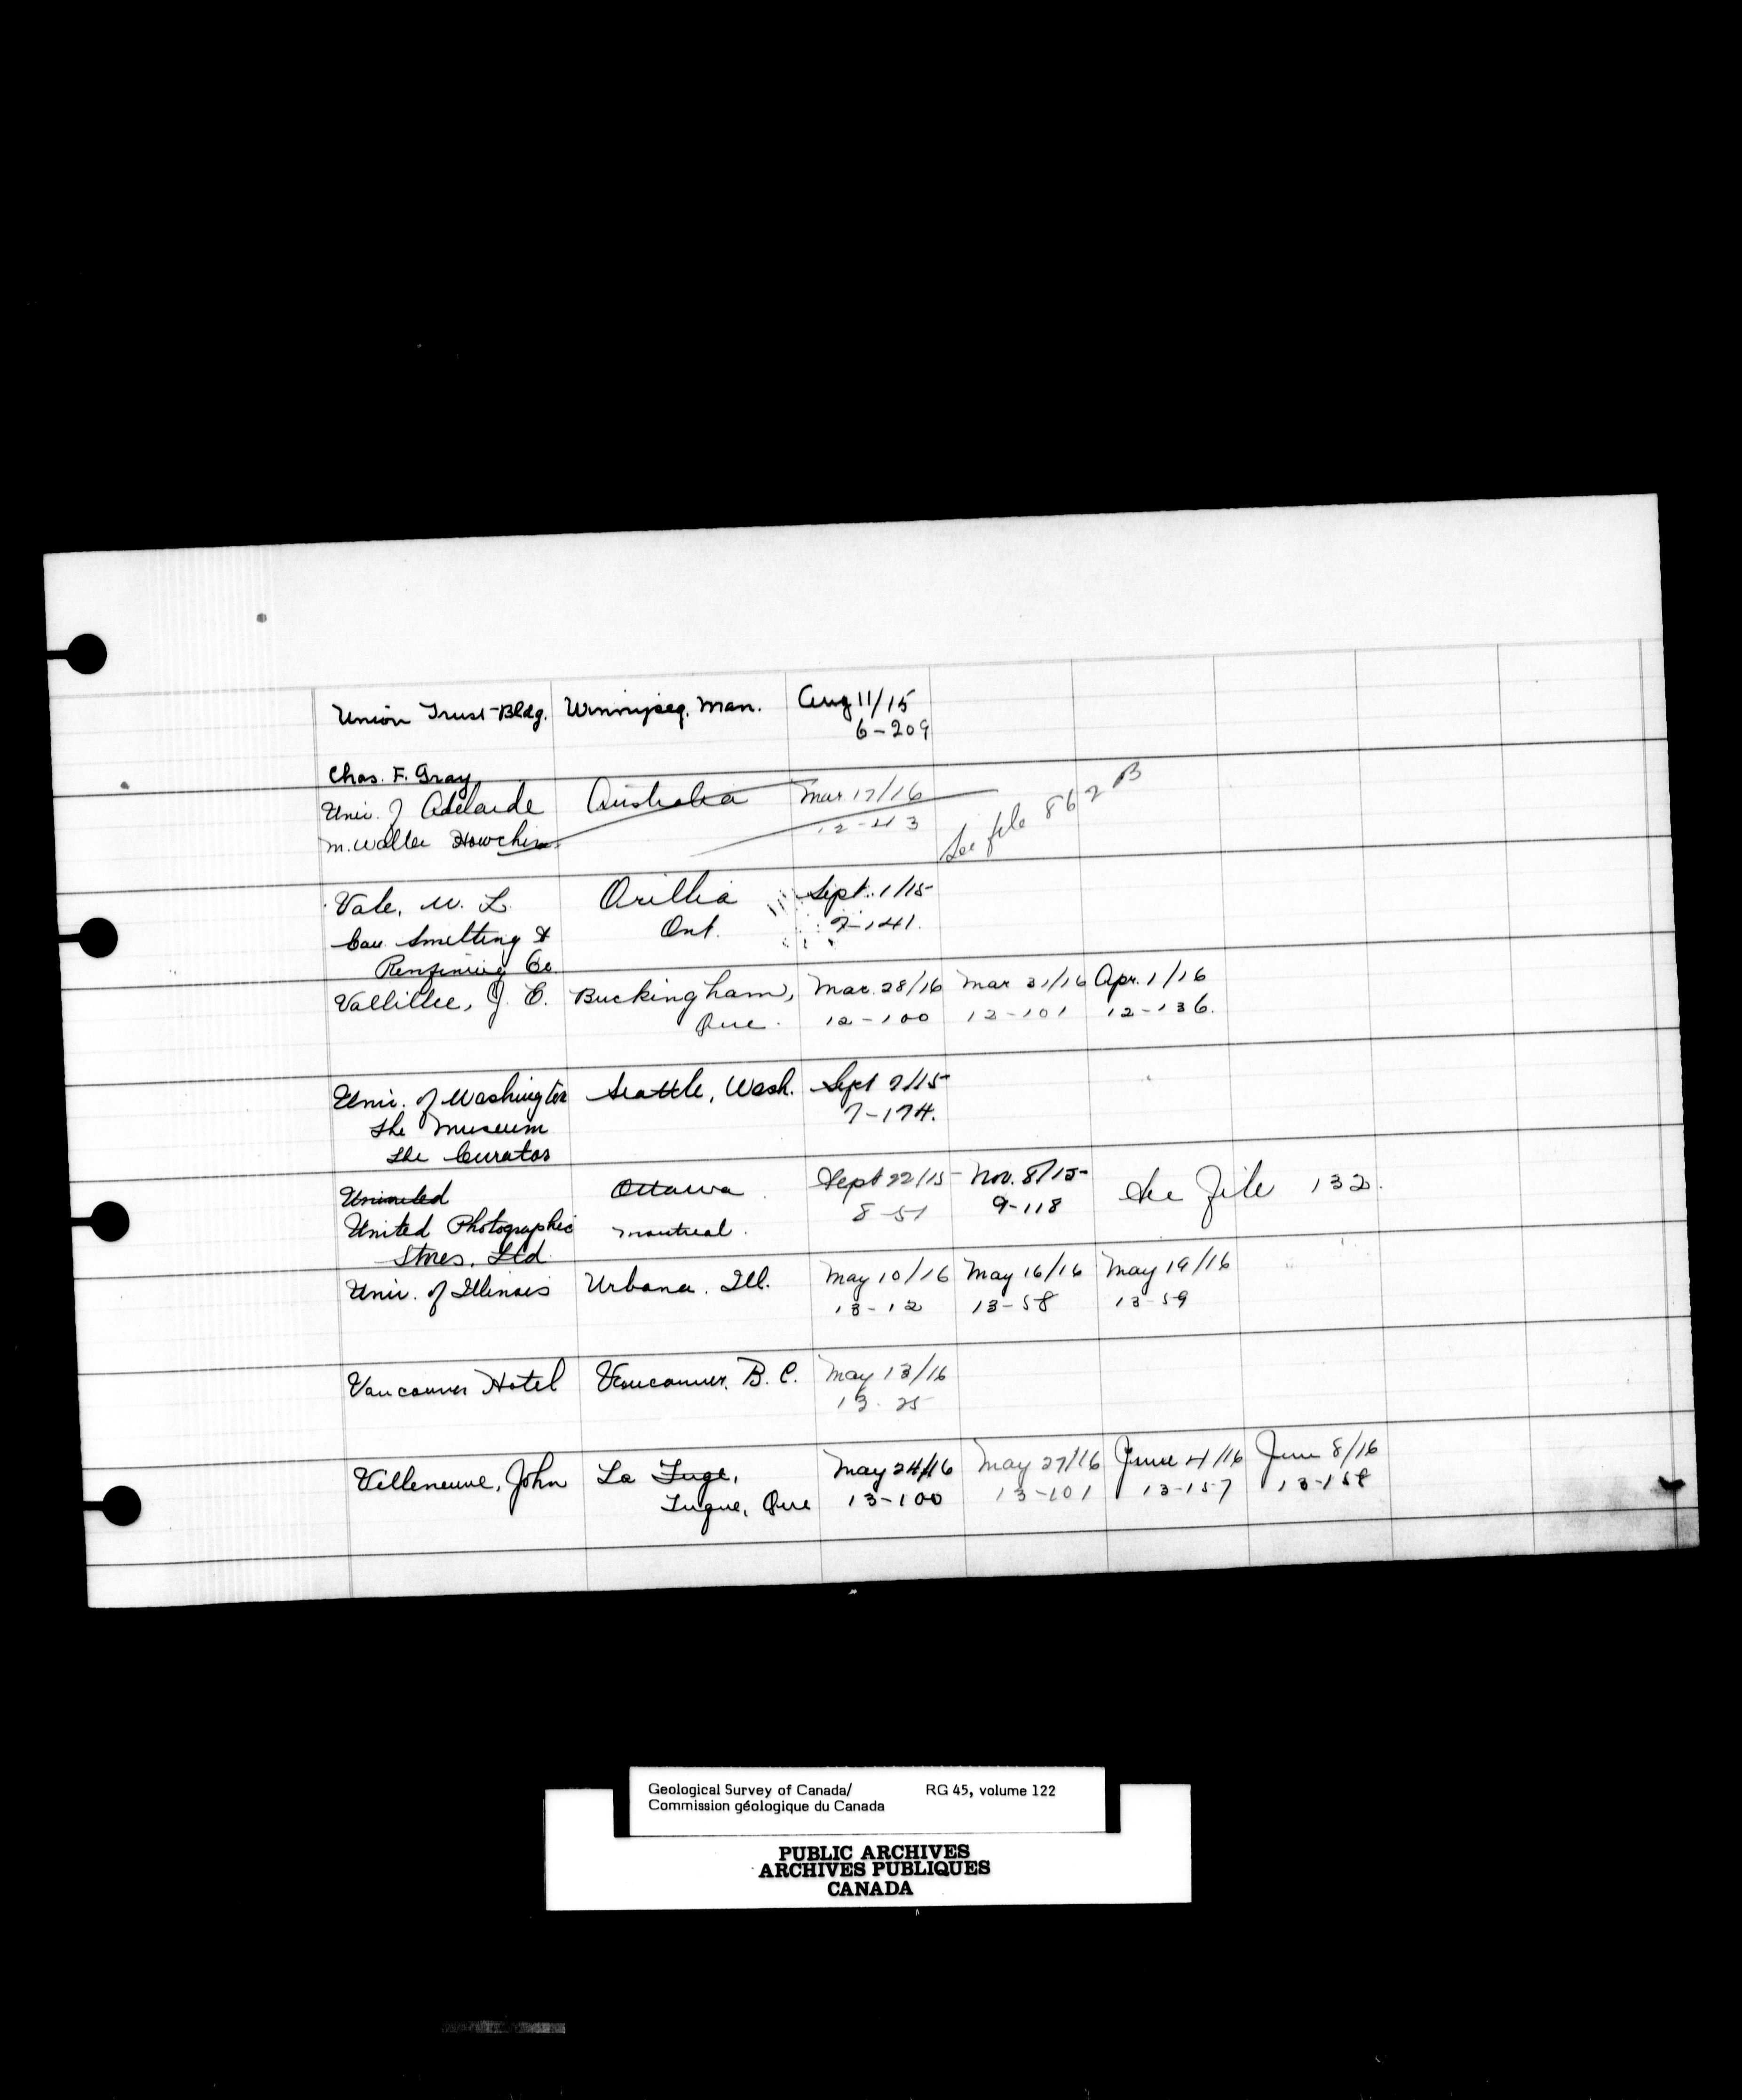 Union Trust Bldg. Winnipeg, Man. Aug 11/15
6-209
Chas. F. Gray
Univ. of Adelaide Australia Mar 17/16
M. Walter Howchin 12-43 See file 862 B
Vale, W. L. Orillia Sept. 1/15
Can. Smelting & Ont. 7-141.
Renfining Co.
Vallillee, J. E. Buckingham, Mar. 28/16 Mar 31/16 Apr. 1/16
Que. 12-100 12-101 12-136.
Univ. of Washington Seattle, Wash. Sept 7/15
The Museum 7-174.
The Curator
Ottawa Sept 22/15 Nov. 8/15 See File 132.
United Photographic Montreal. 8-51 9-118
Stores, Ltd.
Univ. of Illinois Urbana, Ill. May 10/16 May 16/16 May 19/16
13-12 13-58 13-59
Vancouver Hotel Vancouver, B. C. May 13/16
13-25
Villeneuve, John La Tuge, May 24/16 May 27/16 June 4/16 June 8/16
Tugue, Que 13-100 13-101 13-157 13-158
Geological Survey of Canada/ RG 45, volume 122
Commission géologique du Canada
PUBLIC ARCHIVES
ARCHIVES PUBLIQUES
CANADA